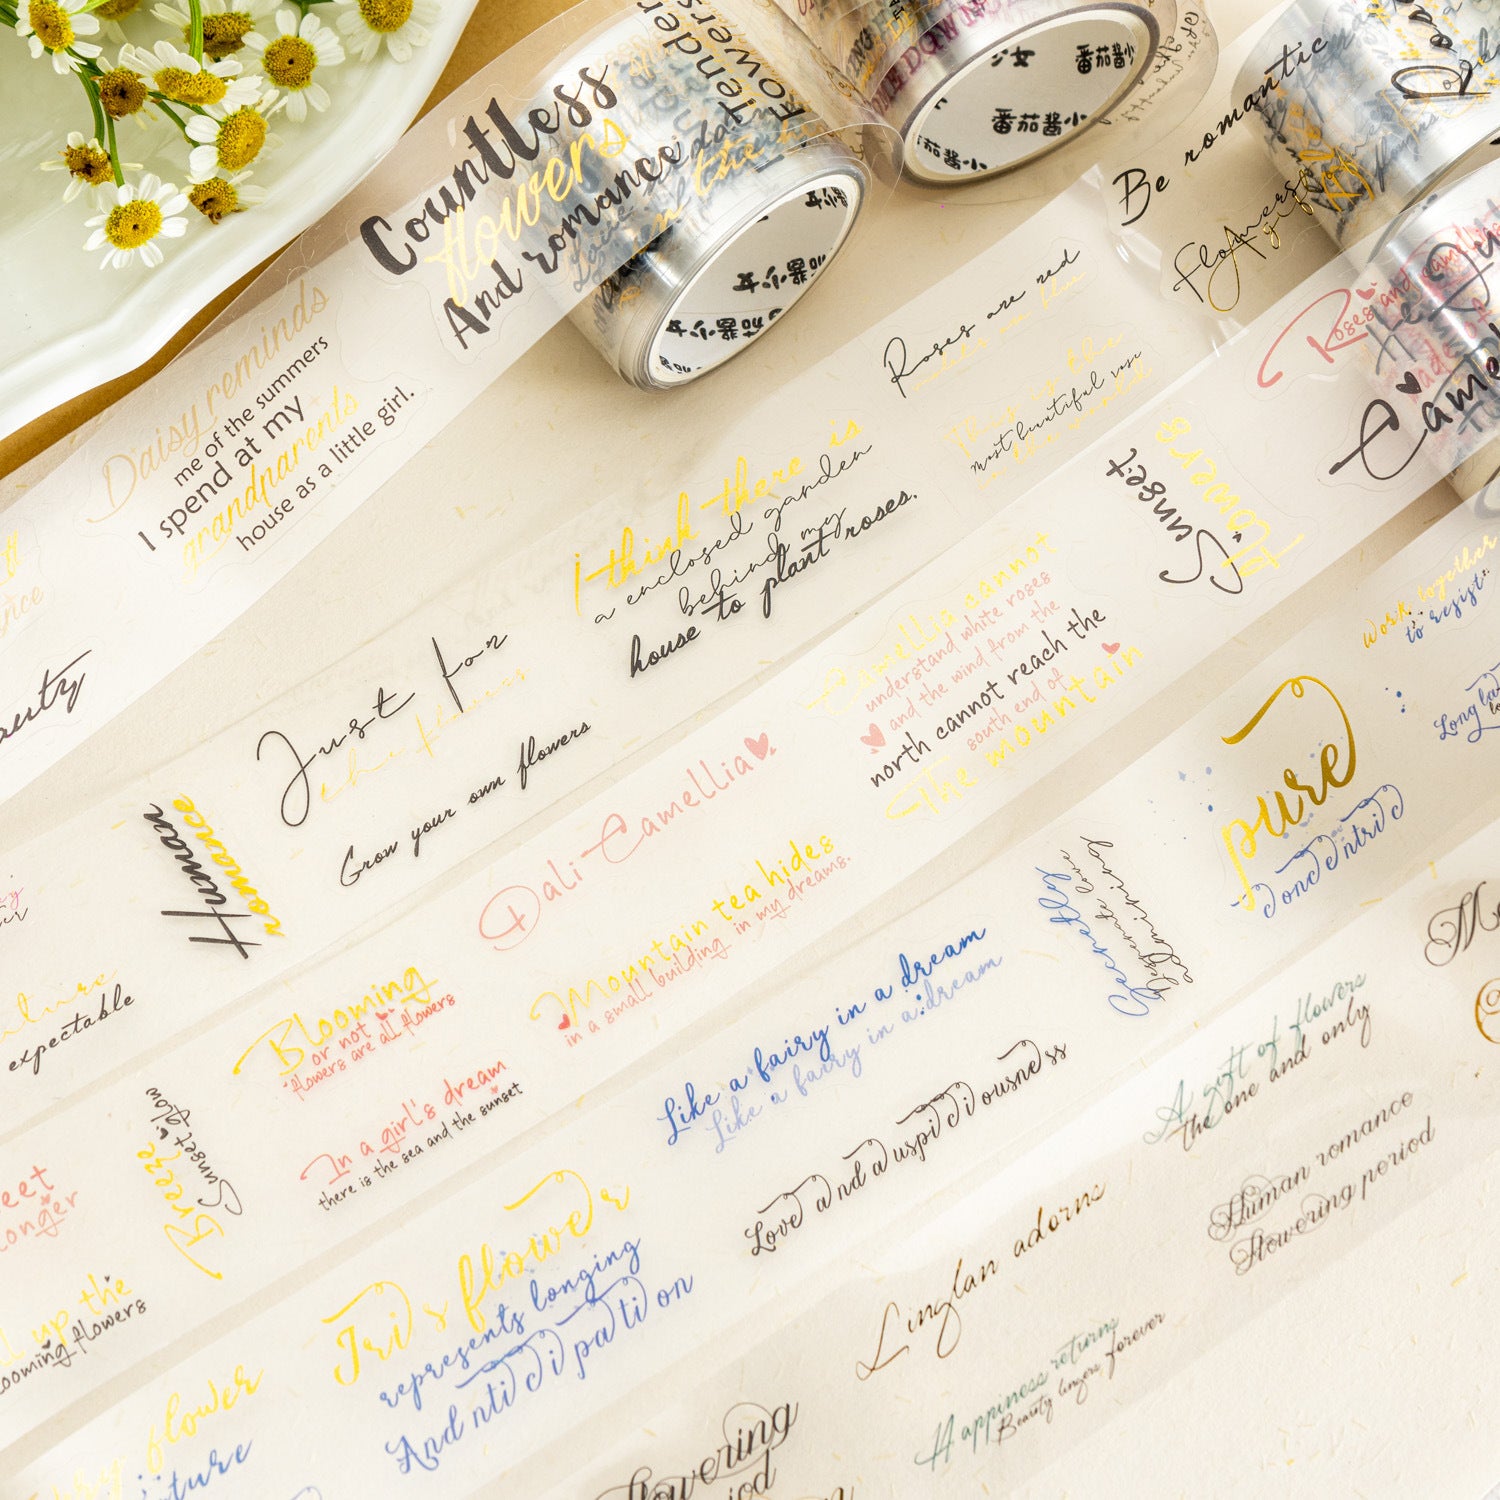 Countless
flowers
And romance
Tender
番茄酱小
番茄酱小
少女
Be romantic
Flowers
Daisy reminds
me of the summers
I spend at my
grandparents
house as a little girl.
Roses are red
I think there is
a enclosed garden
behind my
house to plant roses.
This is the
most beautiful rose
Sunset
flowers
Roses and
Just for
the flowers
Grow your own flowers
Human
romance
expectable
Camellia cannot
understand white roses
and the wind from the
north cannot reach the
south end of
The mountain
Dali Camellia
Mountain tea hides
in a small building in my dreams.
Blooming
or not
flowers are all flowers
In a girl's dream
there is the sea and the sunset
Breeze
Sunset glow
up the
work together
to resist
pure
Secretly
Desperate love
admiring
Like a fairy in a dream
Like a fairy in a dream
Love and auspiciousness
Iris flower
represents longing
And anticipation
flower
A gift of flowers
the one and only
Human romance
flowering period
Linglan adorns
Happiness returns
Beauty lingers forever